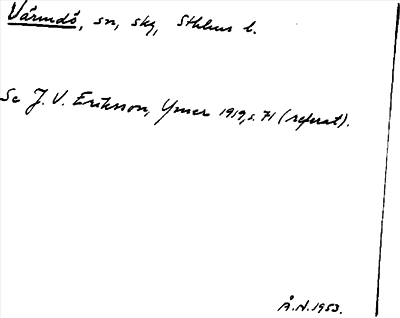 Värmdö, sn, skg, Sthlms l.
Se J. V. Eriksson, Ymer 1919, s. 71 (referat).
Å.N. 1953.